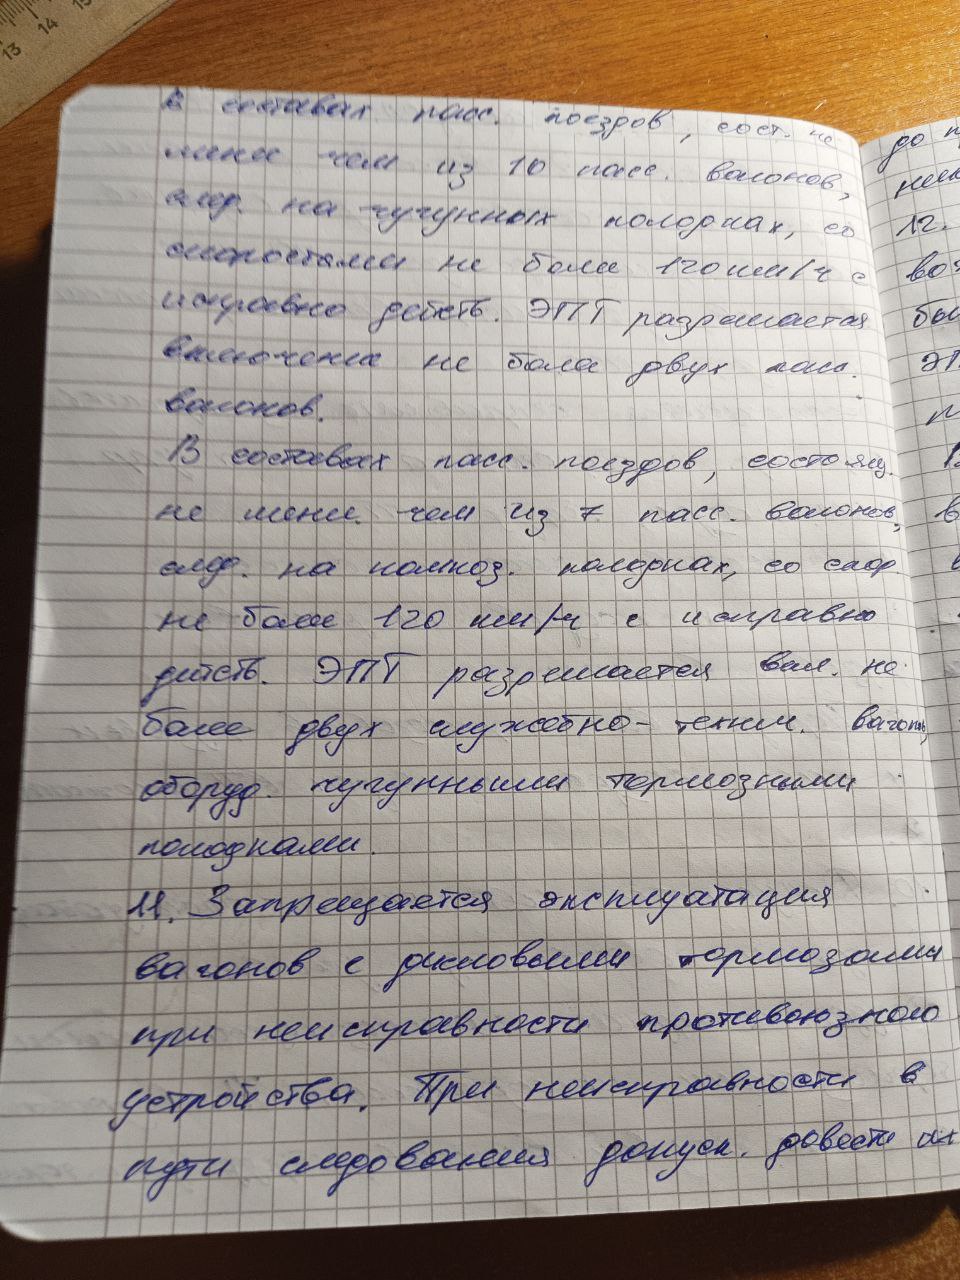 в составах пасс. поездов, сост. не
мене чем из 10 пасс. вагонов,
след. на чугунных колодках, со
скоростями не боле 120 км/ч с
исправно действ. ЭПТ разрешается
включение не боле двух пасс.
вагонов.
В составах пасс. поездов, состоящ.
не мене. чем из 7 пасс. вагонов,
след. на композ. колодках, со скор.
не боле 120 км/ч с исправно
действ. ЭПТ разрешается вкл. не
более двух служебно-техн. вагонов,
оборуд. чугунными тормозными
колодками.
11. Запрещается эксплуатация
вагонов с дисковыми тормозами
при неисправности противоюзного
устройства. При неисправности в
пути следования допуск. довести их
до
12.